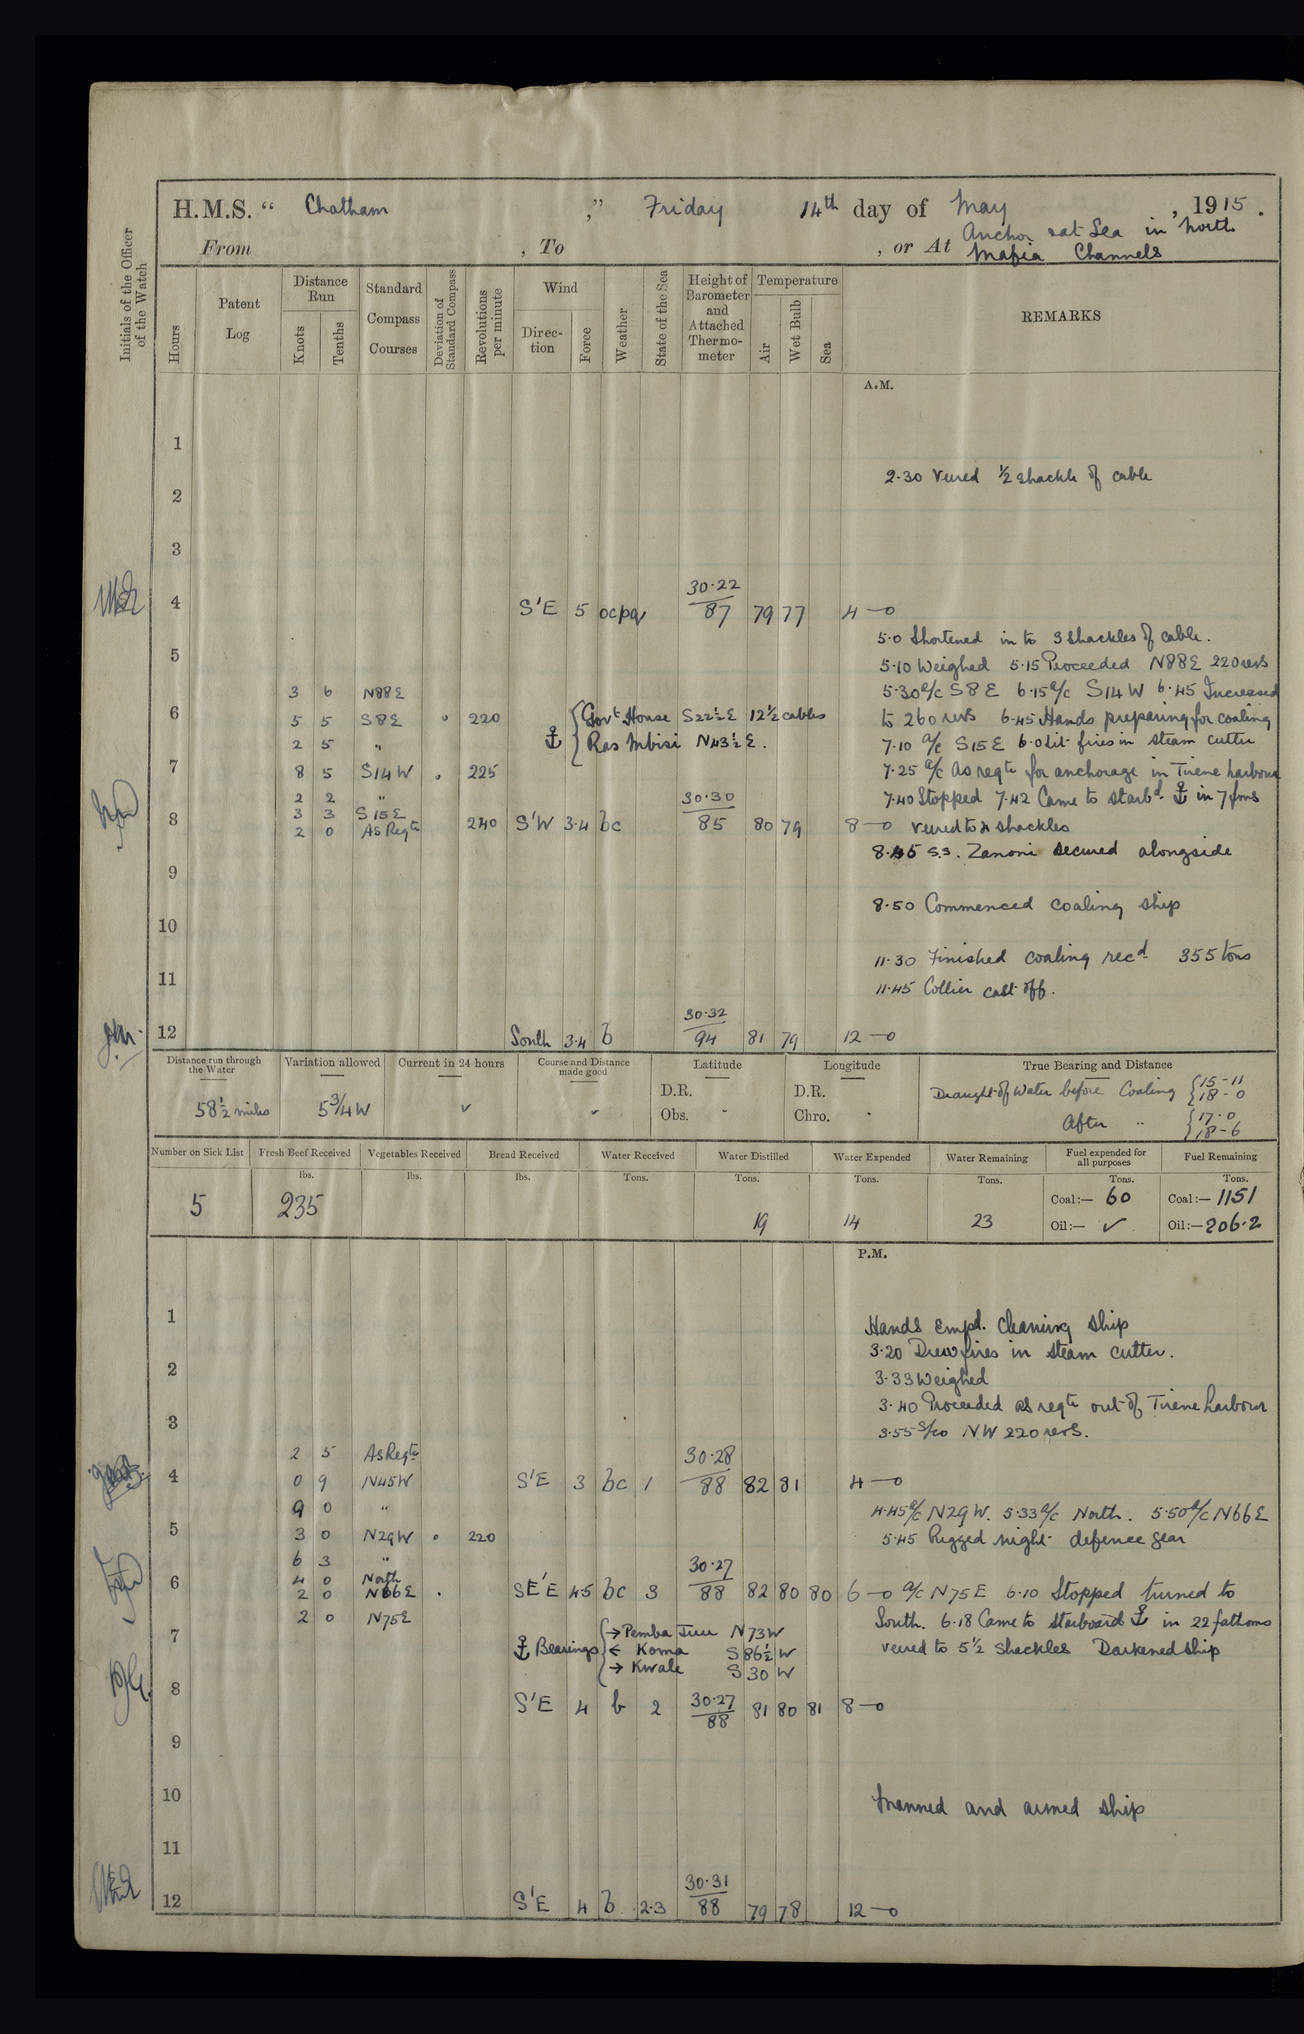 H.M.S. “ Chatham ,” Friday 14th day of May , 1915 .
From , To , or At Anchor & at Sea in North
Mafia Channels
Initials of the Officer of the Watch
Hours
Patent Log
Distance Run
Knots
Tenths
Standard Compass Courses
Deviation of Standard Compass
Revolutions per minute
Wind
Direction
Force
Weather
State of the Sea
Height of Barometer and Attached Thermometer
Temperature
Air
Wet Bulb
Sea
REMARKS
A.M.
1
2.30 Veered ½ shackle of cable
2
3
30.22
4 S'E 5 ocpq 87 79 77 4—0
5.0 Shortened in to 3 shackles of cable.
5
5.10 Weighed 5.15 Proceeded N88E 220 revs
3 6 N88E
5.30 a/c S8E 6.15 a/c S14W 6.45 Increased
6 5 5 S8E 0 220 ⚓ { Govt House S22½E 12½ cables
to 260 revs 6.45 Hands preparing for coaling
2 5 " Ras Mbisi N43½E.
7.10 a/c S15E 6.0 Lit fires in steam cutter
7 8 5 S14W 0 225
7.25 a/c As reqte for anchorage in Tirene harbour
2 2 " 30.30
7.40 Stopped 7.42 Came to starbd ⚓ in 7 fms
3 3 S15E
8 2 0 As Reqte 240 S'W 3.4 bc 85 80 79 8—0 veered to 4 shackles
8.45 S.S. Zanoni secured alongside
9
8.50 Commenced coaling ship
10
11.30 Finished coaling recd 355 tons
11
11.45 Collier cast off.
30.32
12 South 3.4 b 94 81 79 12—0
Distance run through the Water
Variation allowed
Current in 24 hours
Course and Distance made good
Latitude
Longitude
True Bearing and Distance
58½ miles 5¾W ✓ ✓
D.R. D.R.
Obs. Chro.
Draught of Water before Coaling { 15-11
18-0
After " { 17-0
18-6
Number on Sick List
Fresh Beef Received
Vegetables Received
Bread Received
Water Received
Water Distilled
Water Expended
Water Remaining
Fuel expended for all purposes
Fuel Remaining
lbs. lbs. lbs. Tons. Tons. Tons. Tons. Tons. Tons.
5 235 19 14 23
Coal:— 60 Coal:— 1151
Oil:— ✓ Oil:— 206.2
P.M.
1 Hands empd. cleaning ship
3.20 Drew fires in steam cutter.
2
3.33 Weighed
3.40 Proceeded as reqte out of Tirene harbour
3
3.55 S/co NW 220 revs.
2 5 As Reqte 30.28
4 0 9 N45W S'E 3 bc 1 88 82 81 4—0
9 0 "
4.45 a/c N29W. 5.33 a/c North. 5.50 a/c N66E
5 3 0 N29W 0 220
5.45 Rigged night defence gear
6 3 " 30.27
4 0 North
6 2 0 N66E . SE'E 4.5 bc 3 88 82 80 80 6—0 a/c N75E 6.10 Stopped turned to
2 0 N75E
South. 6.18 Came to starboard ⚓ in 22 fathoms
7 ⚓ Bearings { → Pemba Juu N73W
← Koma S86½W
→ Kwale S30W
veered to 5½ shackles Darkened ship
8 S'E 4 b 2 30.27 81 80 81 8—0
88
9
10
Manned and armed ship
11
30.31
12 S'E 4 b 2.3 88 79 78 12—0